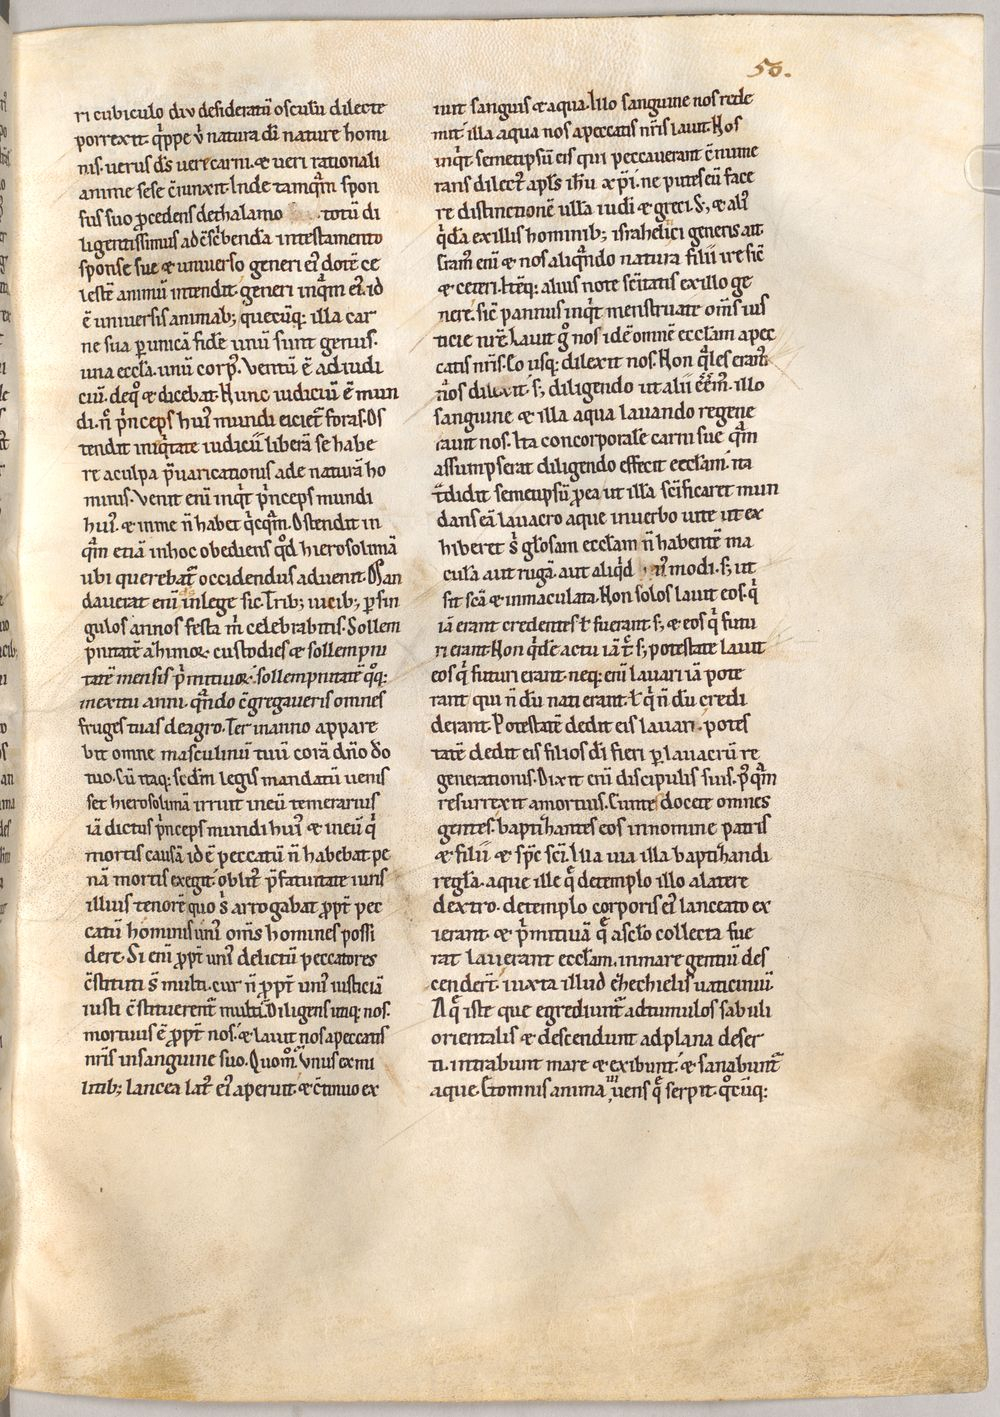 50.
ri cubiculo diu desideratū osculū dilecte
porrexit. q̇ppe ů natura dī nature homi
nis. verus ds̄ vere carni. & veri rationali
anime sese c̄iunxit. Inde tamq̄m spon
sus suo ꝓcedens de thalamo totū di
ligentissimus ad c̄sc̄benda intestamento
sponse sue & universo generi eiꝰ dotē ce
lestē animū intendit. generi inq̄m eiꝰ. id
ē universis animab; quecūq; illa car
ne sua ꝑ unicā fidē unū sunt genus.
una eccl̄a. unū corpꝰ. Ventū ē ad iudi
ciū. de q̊ & dicebat. Nunc iudiciū ē mun
di. n̄c ṗnceps huiꝰ mundi eiciet̄ foras. Os
tendit iniq̇tate iudiciū liberā se habe
re a culpa p̄varicationis ade naturā ho
minis. Venit eni inq̇t ṗnceps mundi
huiꝰ. & in me n̄ habet q̇cq̄m. Ostendit in
q̄m etiā in hoc obediens q̊d hierosolimā
ubi querebat̄ occidendus advenit. Man
daverat enī in lege sic. Trib; vicib; ꝑ sin
gulos annos festa m̄ celebrabitis. Sollem
pnitatē azimoꝝ custodies & sollempni
tatē mensis ṗmitivoꝝ. sollempnitatē q̊q;
in exitu anni. q̄ndo c̄gregaveris omnes
fruges tuas de agro. Ter in anno appare
bit omne masculinū tuū corā dn̄o do
tuo. Cū itaq; sedm̄ legis mandatū venis
set hierosolimā irruit in eū temerarius
iā dictus ṗnceps mundi huiꝰ & in eū q̇
mortis causā id ē peccatū n̄ habebat pe
nā mortis exegit. oblitꝰ p̄ fatuitate iuris
illius tenorē quo s̄ arrogabat ꝓpt̄ pec
catū hominis uniꝰ om̄s homines possi
dere. Si enī ꝓpt̄ uniꝰ delictū peccatores
c̄stituti s̄ multi. cur n̄ ꝓpt̄ uniꝰ iusticiā
iusti c̄stituerent̄ multi. Diligens itaq; nos.
mortuus ē ꝓpt̄ nos. & lavit nos a peccatis
nr̄is in sanguine suo. Quom̊. Unus ex mi
litib; lancea latꝰ eiꝰ aperuit. & c̄tinuo ex
ivit sanguis & aqua. Illo sanguine nos rede
mit. illa aqua nos a peccatis nr̄is lavit. Nos
inq̇t semetipsū eis qui peccaverant c̄nume
rans dilectꝰ apl̄s ih̄u xp̄i. ne putes eū face
re distinctionē ullā iudei & greci. S; & aliꝰ
q̇dā ex illis hominib; israhelici generis ait
Eramꝰ enī & nos aliq̄ndo natura filii ire sic̄
& ceteri. Itēq; alius note sc̄itatis ex illo ge
nere. sic̄ pannus inq̇t menstruate om̄s ius
ticie nr̄e. Lavit g̊ nos id ē omnē eccl̄am a pec
catis nr̄is. Eo usq; dilexit nos. Non q̄les eramꝰ
nos dilexit. s; diligendo ut alii eēmꝰ. illo
sanguine & illa aqua lavando regene
ravit nos. Ita concorporale carni sue q̄m
assumpserat diligendo effecit eccl̄am. ita
t̄didit semetipsū ꝓ ea ut illā sc̄ificaret mun
dans eā lavacro aque in verbo vite ut ex
hiberet s̄ glo͞sam eccl̄am n̄ habentē ma
culā aut rugā. aut aliq̇d modi. s; ut
sit sc̄a & inmaculata. Non solos lavit eos. q̇
iā erant credentes ł fuerant. s; & eos q̇ futu
ri erant. Non q̇dē actu iā t̄c s; potestate lavit
eos q̇ futuri erant. neq; enī lavari iā pote
rant qui n̄ du᷒ nati erant. ł q̇ n̄ du᷒ credi
derant. Potestatē dedit eis lavari. potes
tatē dedit eis filios dī fieri ꝑ lavacrū re
generationis. Dixit enī discipulis suis. pꝰq̄m
resurrexit a mortuis. Euntes docete omnes
gentes. baptizantes eos in nomine patris
& filii & sp̄c sc̄i. Una via illa baptizandi
regl̄a. aque ille q̄ de templo illo a latere
dextro. de templo corporis eiꝰ lanceato ex
ierant. & ṗmitivā q̄ asclo collecta fue
rat laverant eccl̄am. in mare gentiū des
cendert̄. iuxta illud ezechielis vaticiniū.
Aq̄ iste que egrediunt̄ ad tumulos sabuli
orientalis & descendunt ad plana deser
ti. intrabunt mare & exibunt. & sanabunt̄
aque. Et omnis anima vivens q̄ serpit. q̊cūq;